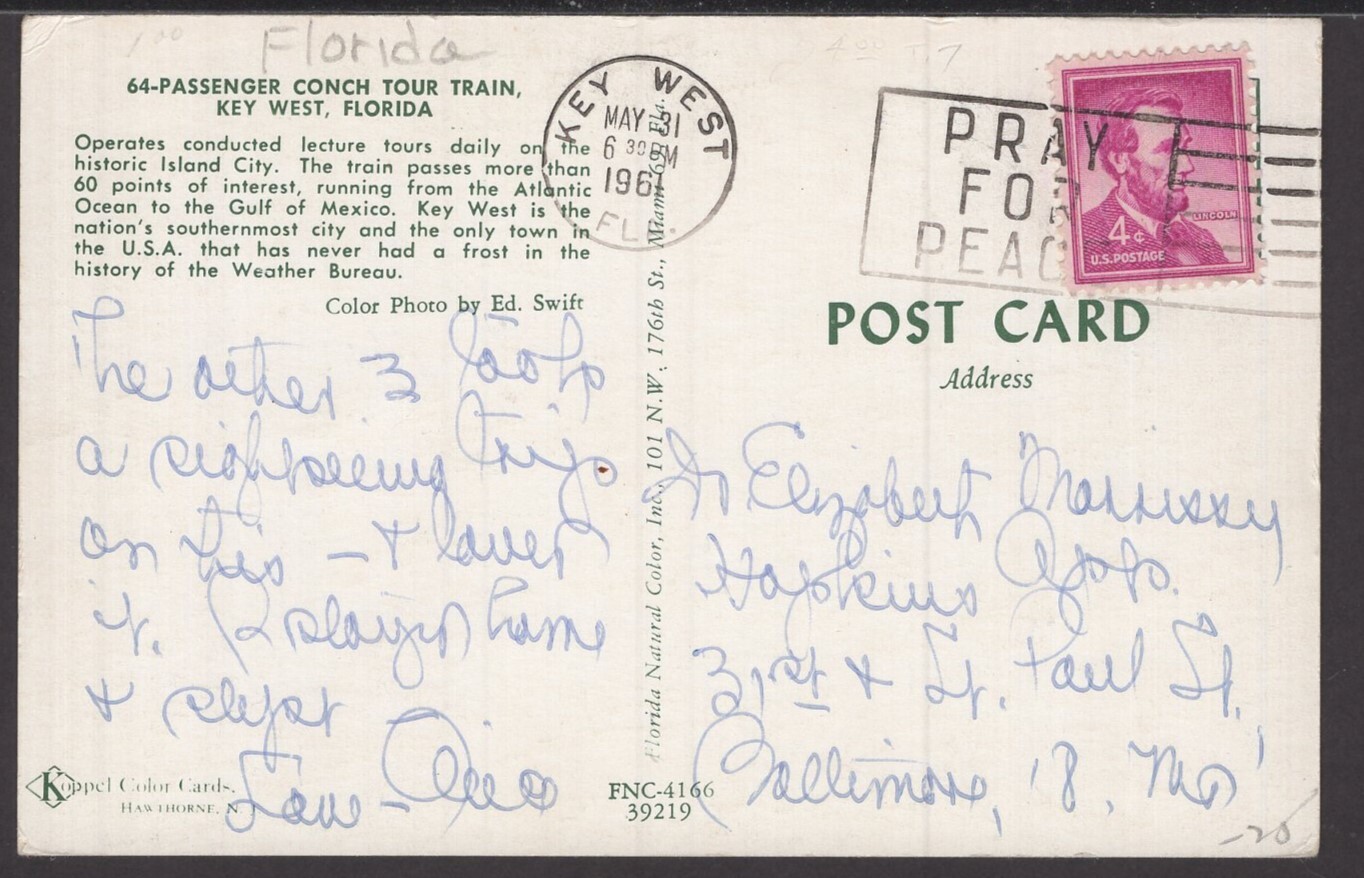 Florida
64-PASSENGER CONCH TOUR TRAIN,
KEY WEST, FLORIDA
Operates conducted lecture tours daily on the
historic Island City. The train passes more than
60 points of interest, running from the Atlantic
Ocean to the Gulf of Mexico. Key West is the
nation's southernmost city and the only town in
the U.S.A. that has never had a frost in the
history of the Weather Bureau.
Color Photo by Ed. Swift
The other 3 took
a sightseeing trip
on this - & loved
it. I stayed home
& slept
Love -
Koppel Color Cards.
HAWTHORNE, N.
Florida Natural Color, Inc., 101 N.W. 176th St., Miami 69, Fla.
FNC-4166
39219
KEY WEST
MAY 31
6 30 PM
1961
FLA.
PRAY
FOR
PEAC
LINCOLN
4¢
U.S. POSTAGE
POST CARD
Address
Elizabeth Morrissey
Hopkins Apts.
31st & St. Paul St.
Baltimore, 18, Md
-20